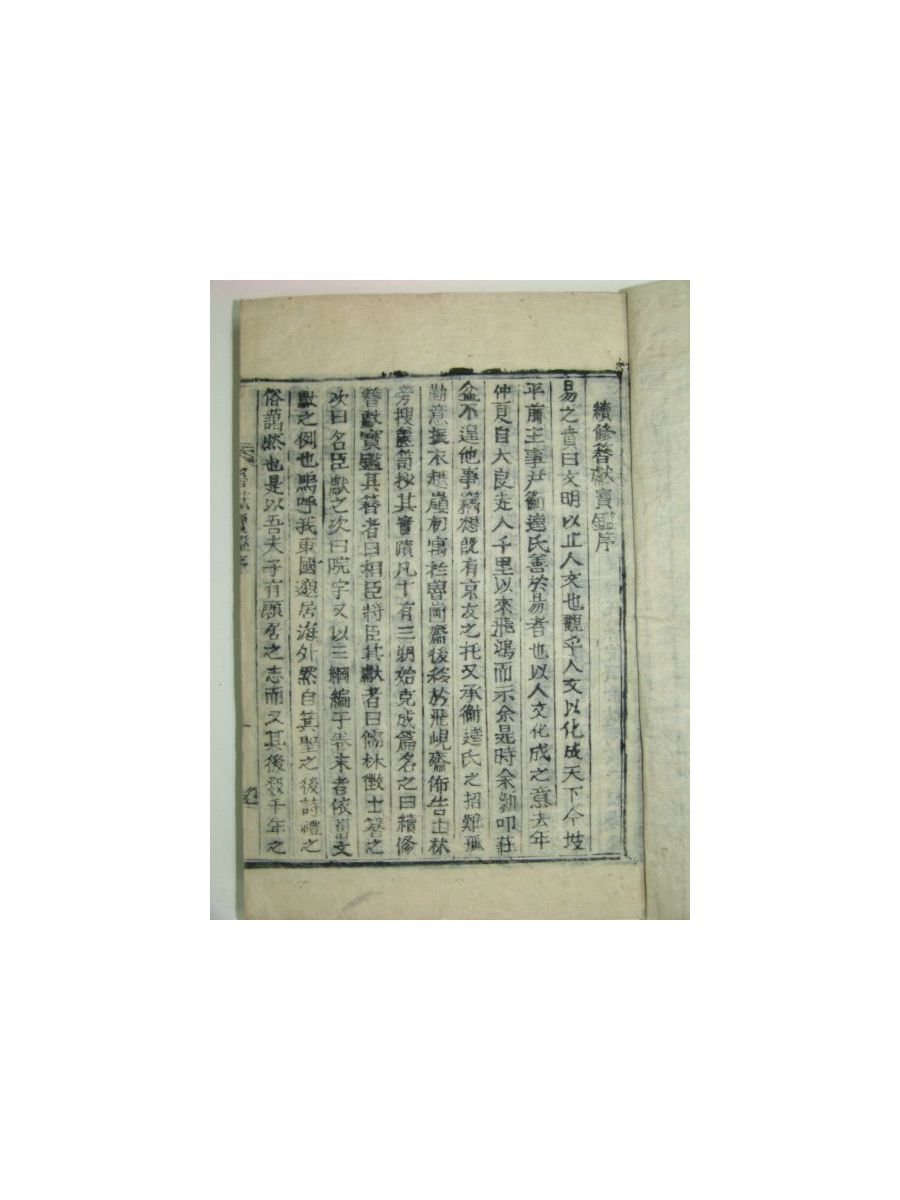 續修簪献寶鑑序
易之賁曰文明以止人文也觀乎人文以化成天下今坡
平前主事尹衡逵氏善於易者也以人文化成之意去年
仲夏自大良走人千里以來飛鴻而示余是時余叩莊
盆不遑他事竊想旣有京友之托又承衡逵氏之招難孤
勤意振衣越嶺初寓於魯崗齋後移於飛峴齋佈告士林
旁搜篋笥抄其實蹟凡十有三朔始克成篇名之曰續修
簪獻寶鑑其簪者曰相臣將臣其獻者曰儒林徵士簪之
次曰名臣獻之次曰院字又以三綱編于卷末者依前文
獻之例也嗚呼我東國邈居海外然自箕聖之後詩禮之
俗藹然也是以吾夫子有願居之志而又其後數千年之